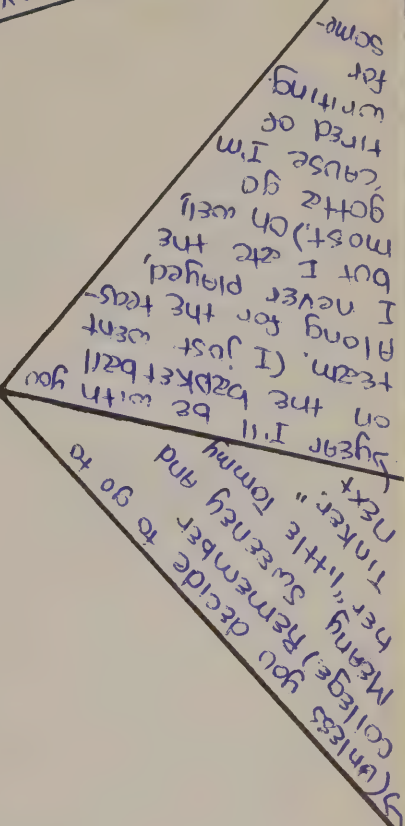 (unless you decide to go to
college.) Remember
Meany Sweeney and
her "little Tommy
Tinker."
next
year I'll be with you
on the basketball
team. (I just went
along for the feas-
I never played,
but I ate the
most.) Oh well,
gotta go
'cause I'm
tired of
writing
for
some-